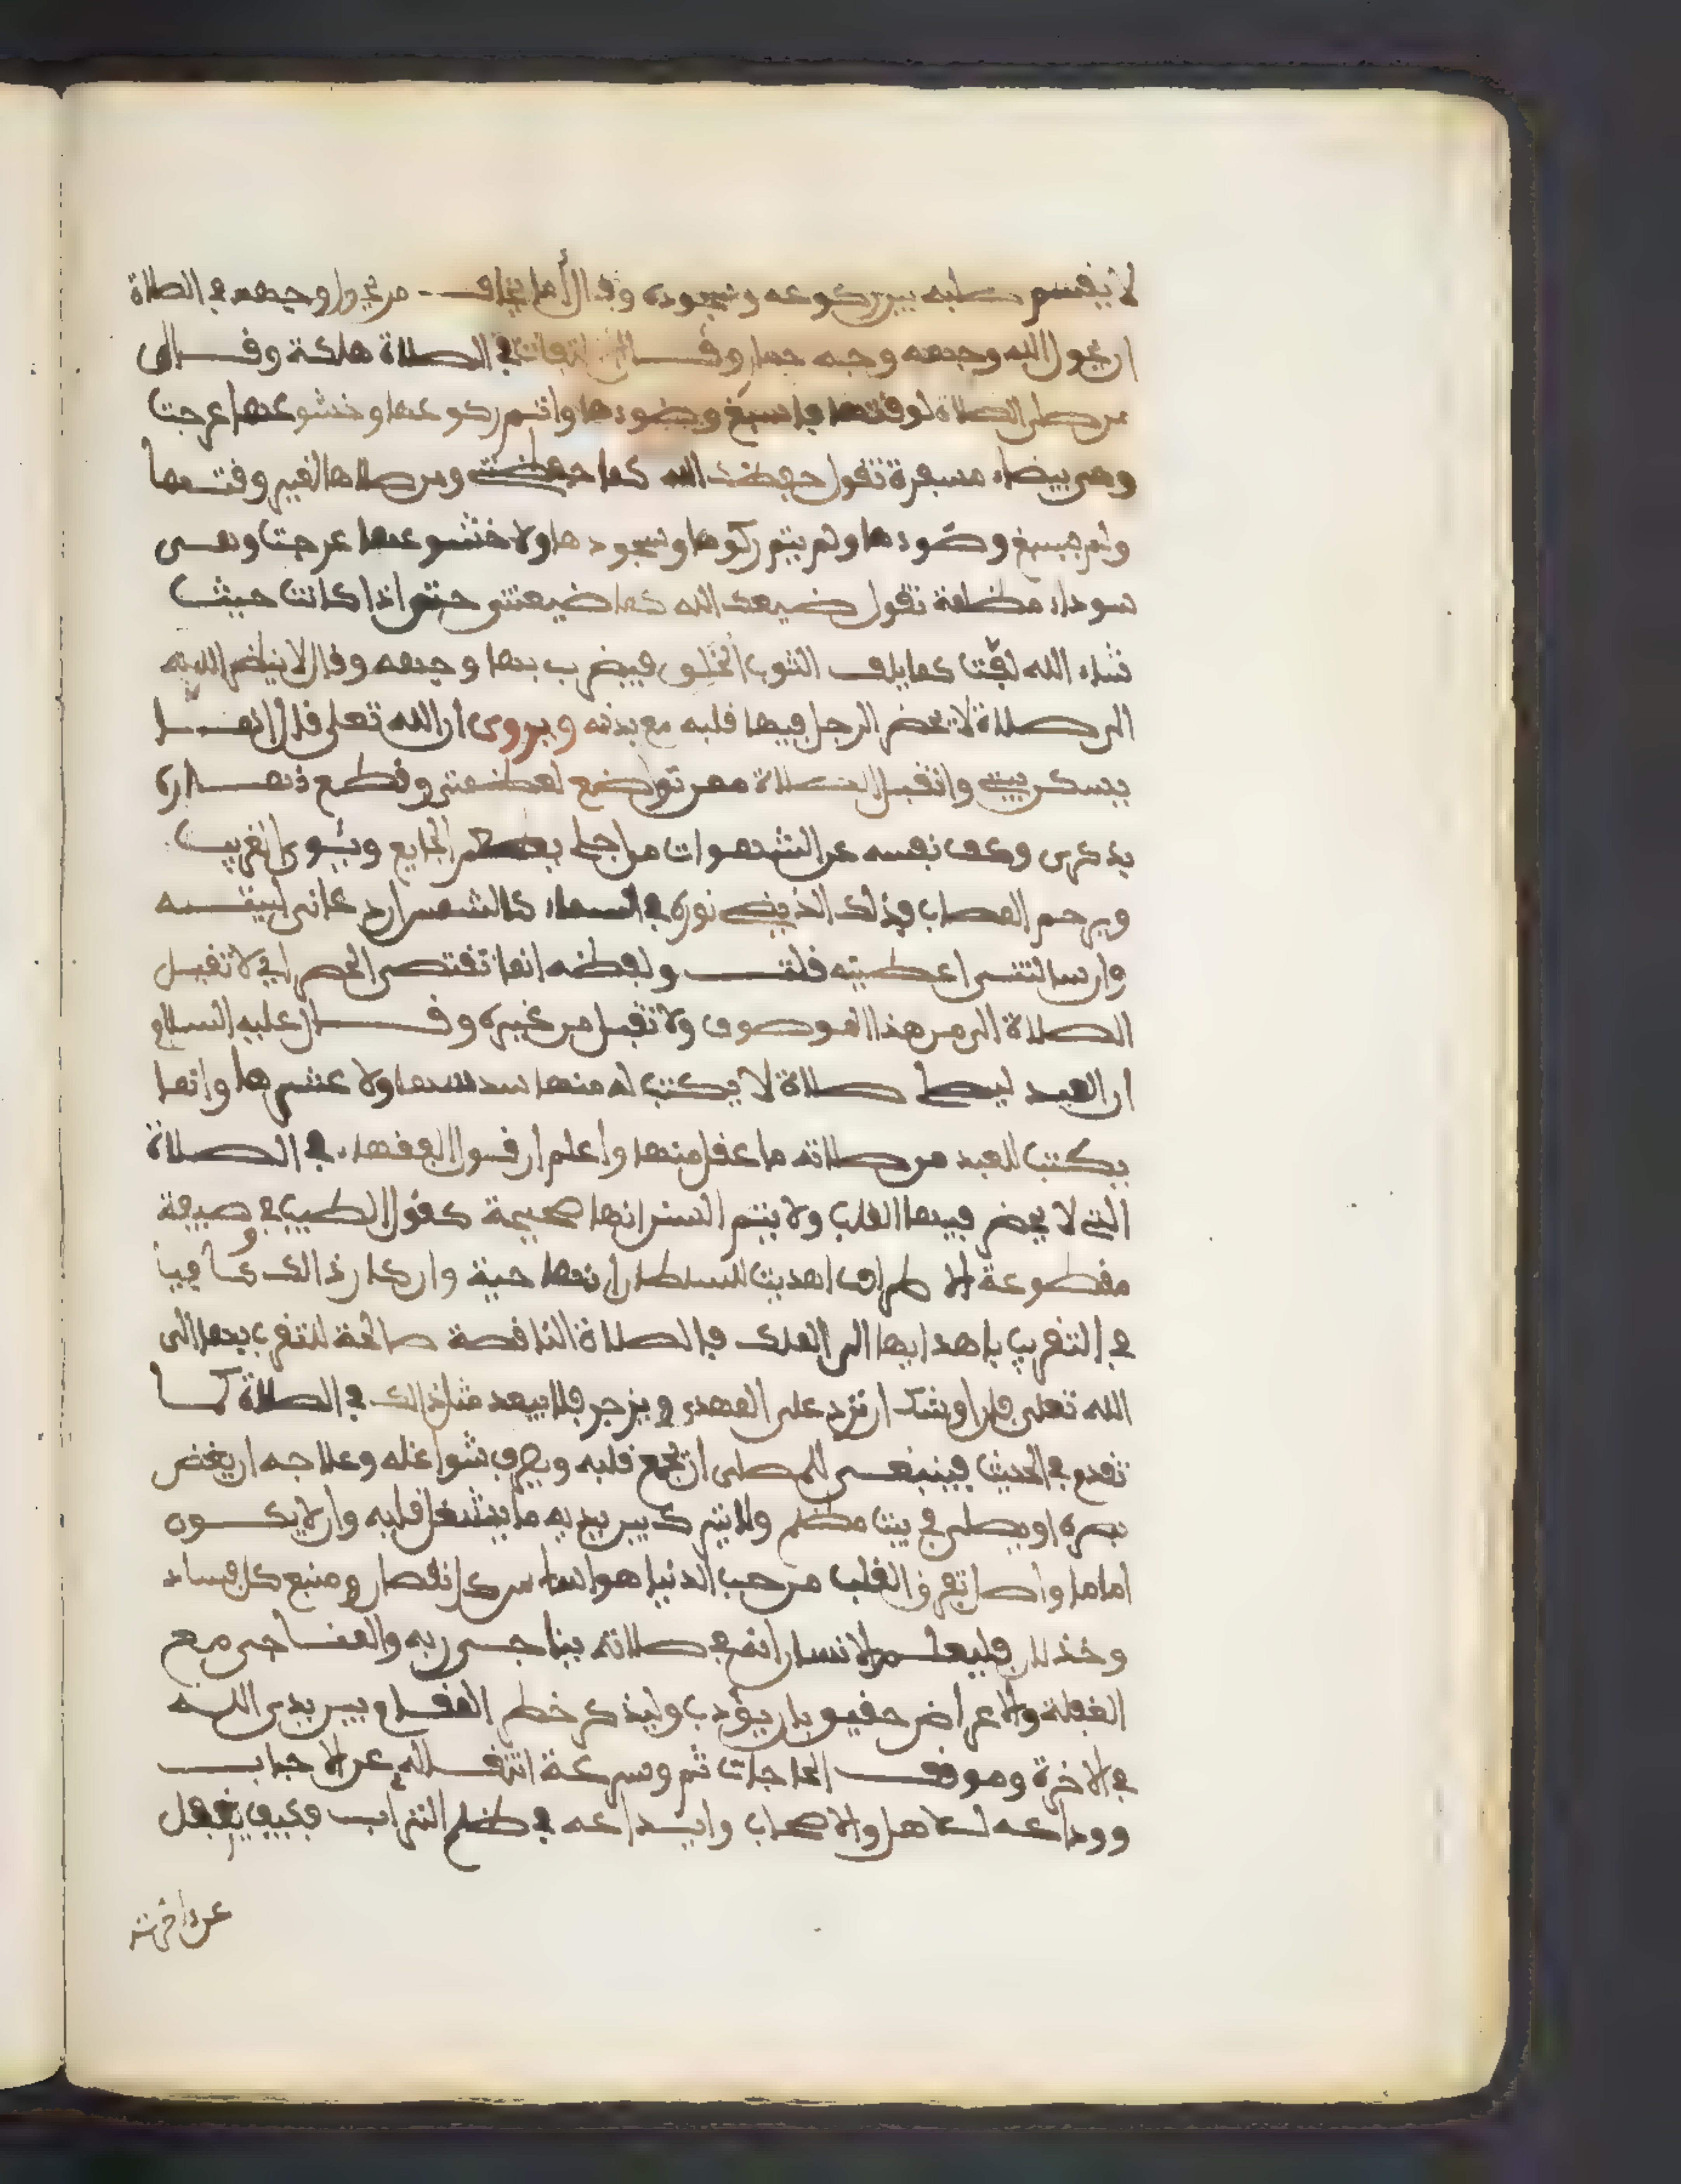 لا يقيم صلبه بين ركوعه وسجوده وقال أما يخاف من يحول وجهه في الصلاة
ان يحول الله وجهه وجه حمار وقال التفات في الصلاة هلكة وقال
من صلى الصلاة لوقتها فاسبغ وضوءها واتم ركوعها وخشوعها عرجت
وهي بيضاء مسفرة تقول حفظك الله كما حفظتني ومن صلاها لغير وقتها
ولم يسبغ وضوءها ولم يتم ركوعها وسجودها ولا خشوعها عرجت وهي
سوداء مظلمة تقول ضيعك الله كما ضيعتني حتى اذا كانت حيث
شاء الله لفت كما يلف الثوب الخلق فيضرب بها وجهه وقال لا ينظر الله
الى صلاة لا يحضر الرجل فيها قلبه مع بدنه ويروى ان الله تعلى قال انما
يسكن بيتي واتقبل الصلاة ممن تواضع لعظمتي وقطع نهاره
بذكري وكف نفسه عن الشهوات من اجلي يطعم الجايع ويئوي الغريب
ويرحم المصاب فذلك الذي يضيء نوره في السماء كالشمس ان دعاني لبيته
وان سالني اعطيته قلت ولفظه انما تقتضي الحصر اي لا تقبل
الصلاة الى من هذا الموصوف ولا تقبل من غيره وقال عليه السلام
ان العبد ليصلي صلاة لا يكتب له منها سدسها ولا عشرها وانما
يكتب للعبد من صلاته ما عقل منها واعلم ان قول الفقهاء في الصلاة
التي لا يحضر فيها القلب ولا يتم السنن انها صحيحة كقول الطبيب في وصيفة
مقطوعة الاطراف اهديت للسلطان انها حية وان كان ذالك كافيا
في التقريب باهدايها الى الملك فالصلاة الناقصة صالحة للتقرب بها الى
الله تعلى فان اوشك ان ترد على المهدي ويزجر فلا يبعد مثل ذالك في الصلاة كما
تقدم في الحديث فينبغي للمصلي ان يجمع قلبه ويصرف شواغله وعلاجه ان يغض
بصره او يصلي في بيت مظلم ولا يترك بين يديه ما يشغل قلبه وان لا يكون
اماما واصل تفرق القلب من حب الدنيا هو اساس كل نقصان ومنبع كل فساد
وخذلان فليعلم الانسان انه في صلاته يناجي ربه والمناجي مع
الغفلة والاعراض حقيق بان يؤدب وليذكر خطر المقام بين يدي الله
في الاخرة وموقف الحاجات ثم وسرعة انتقاله عن الاحباب
ووداعه للاهل والاصحاب وايداعه في ظلم التراب فكيف يغفل